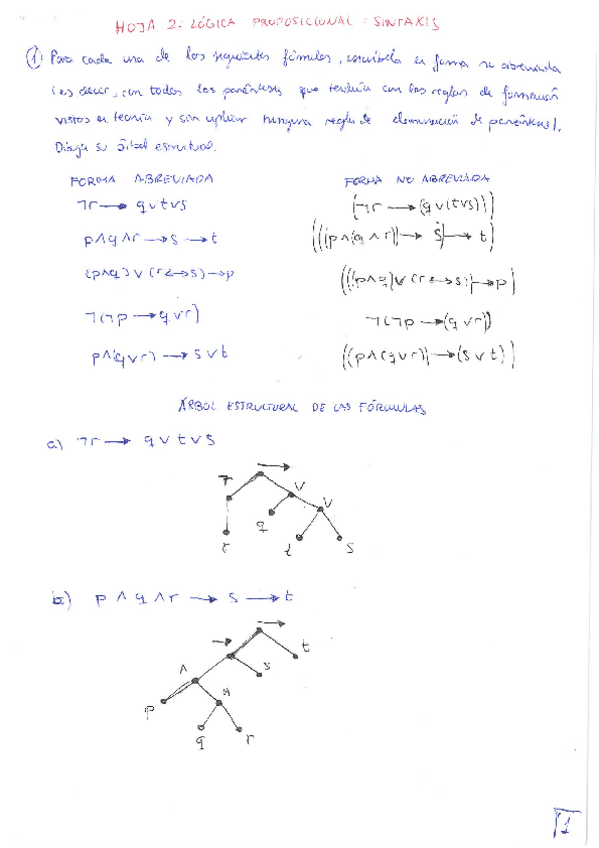 HOJA 2. LÓGICA PROPOSICIONAL: SINTAXIS
① Para cada una de las siguientes fórmulas, escríbela en forma no abreviada
(es decir, con todos los paréntesis que tendría con las reglas de formación
vistas en teoría y sin aplicar ninguna regla de eliminación de paréntesis).
Dibuja su árbol estructural.
FORMA ABREVIADA FORMA NO ABREVIADA
¬r → q∨t∨s (¬r → (q∨(t∨s)))
p∧q∧r → s → t (((p∧(q∧r)) → s) → t)
(p∧q)∨(r↔s)→p (((p∧q)∨(r↔s))→p)
¬(¬p → q∨r) ¬(¬p → (q∨r))
p∧(q∨r) → s∨t ((p∧(q∨r))→(s∨t))
ÁRBOL ESTRUCTURAL DE LAS FÓRMULAS
a) ¬r → q∨t∨s
→
¬ ∨
∨
q
r t s
b) p∧q∧r → s → t
→
→ t
∧ s
∧
p
q r
1